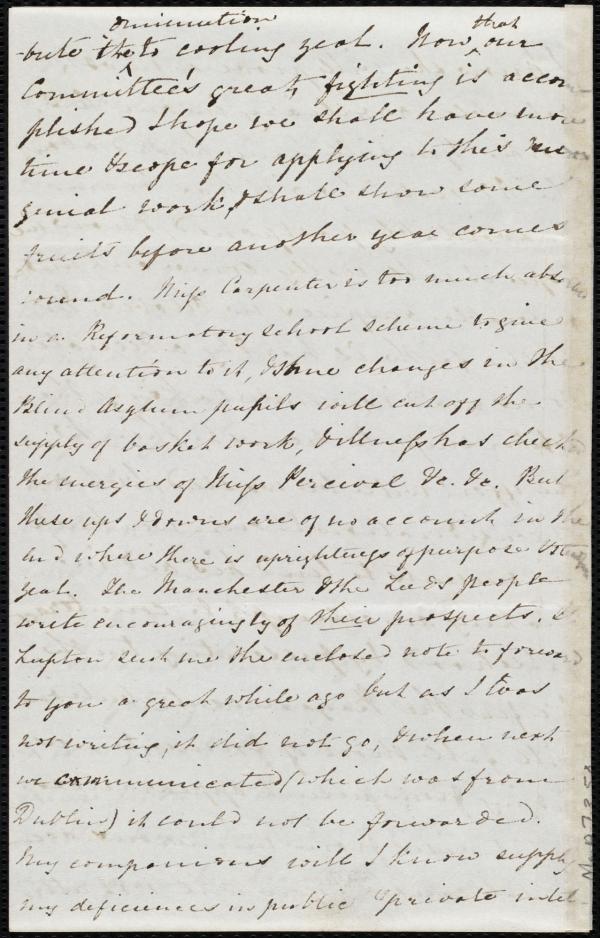 diminution
-bute ^ to cooling zeal. Now ^that our
Committee's great fighting is accom
plished I hope we shall have more
time & scope for applying to this con
genial work, & shall show some
fruits before another year comes
round. Miss Carpenter is too much absor
in a Reformatory school scheme to give
any attention to it, & some changes in the
Blind Asylum pupils will cut off the
supply of basket work, & illness has check
the energies of Miss Percival &c. &c. But
these ups & downs are of no account in the
end where there is uprightness of purpose &
zeal. The Manchester & the Leeds people
write encouragingly of their prospects.
Lupton sent me the enclosed note to forward
to you a great while ago but as I was
not writing, it did not go, & when next
we communicated (which was from
Dublin) it could not be forwarded.
My companions will I know supply
my deficiences in public & private intel